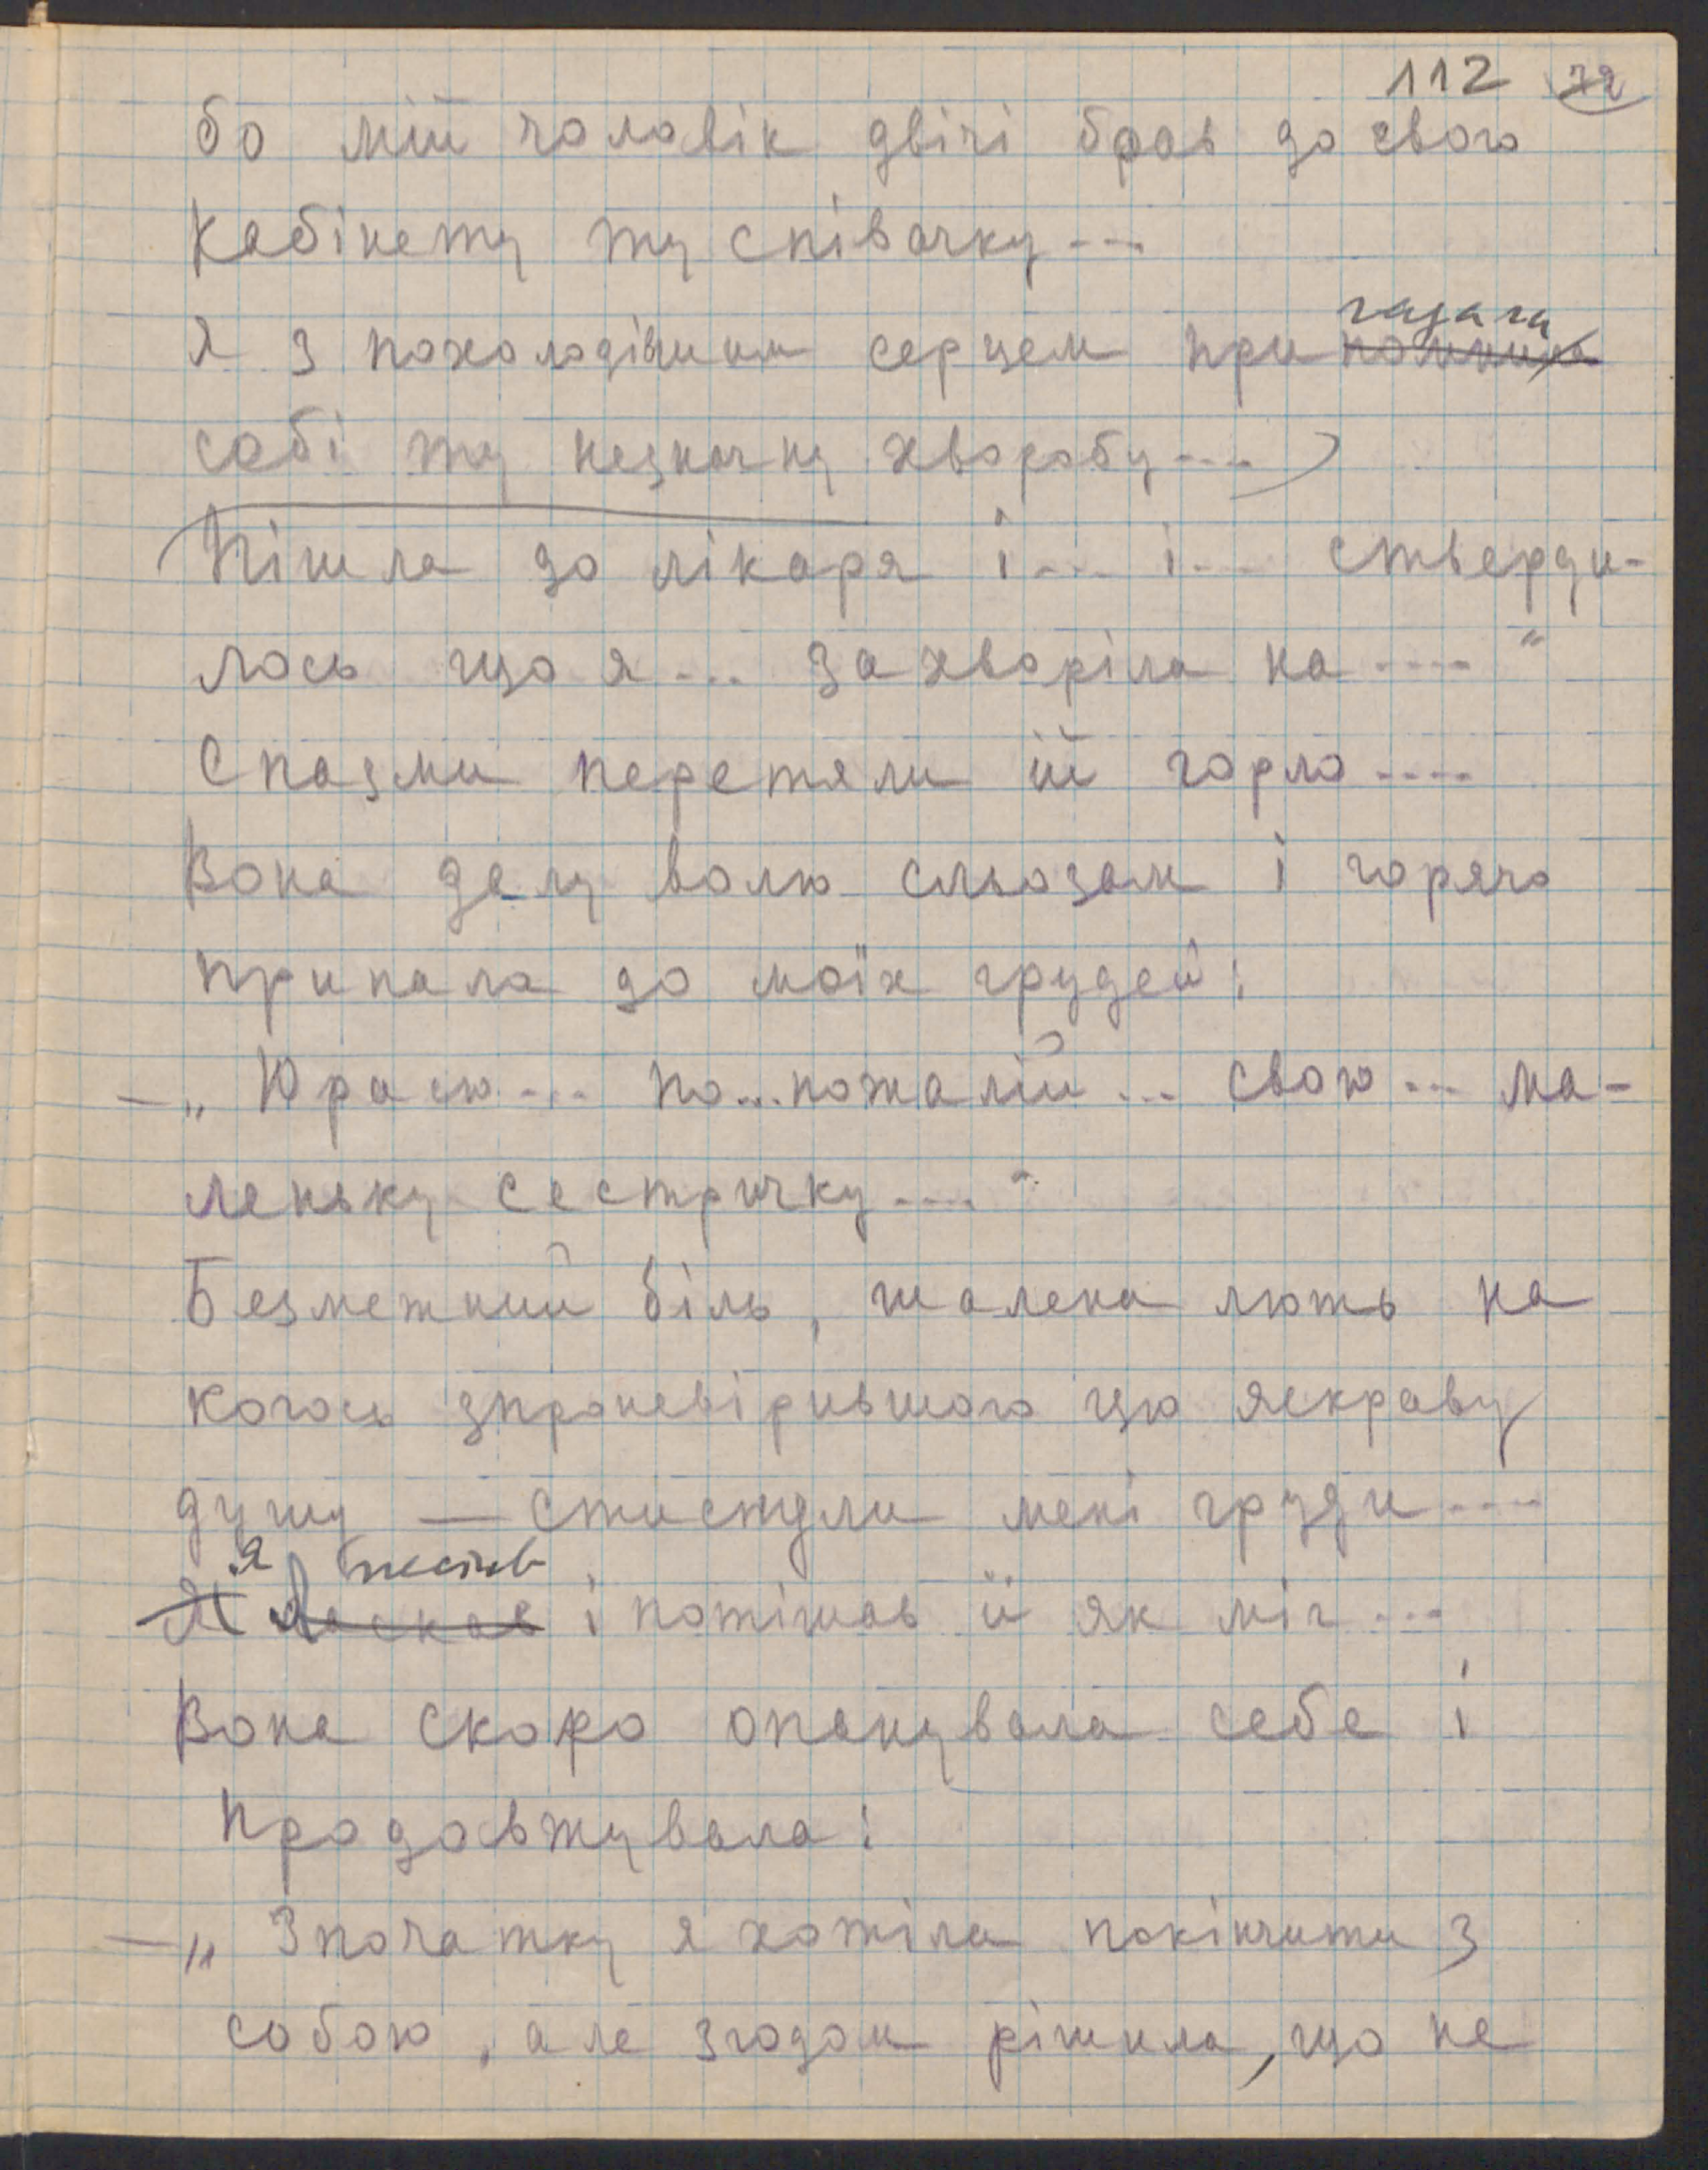 112 72
бо мій чоловік двічі брав до свого
кабінету ту співачку ---
гадала
Я з похолодівшим серцем при помнила
собі ту незначну хворобу ----
Пішла до лікаря і --- і --- стверди-
лось що я --- захворіла на ---- "
Спазми перетяли їй горло ----
Вона далу волю сльозам і горячо
припала до моїх грудей:
— „ Юрасю --- по...пожалій ... свою --- ма-
леньку сестричку ---- "
Безмежний біль, шалена лють на
когось зпроневірившого цю яскраву
душу — стиснули мені груди ----
я
Я ласкав і потішав її як міг ---
Вона скоро опанувала себе і
продовжувала:
— „ Зпочатку я хотіла покінчити з
собою, але згодом рішила, що не